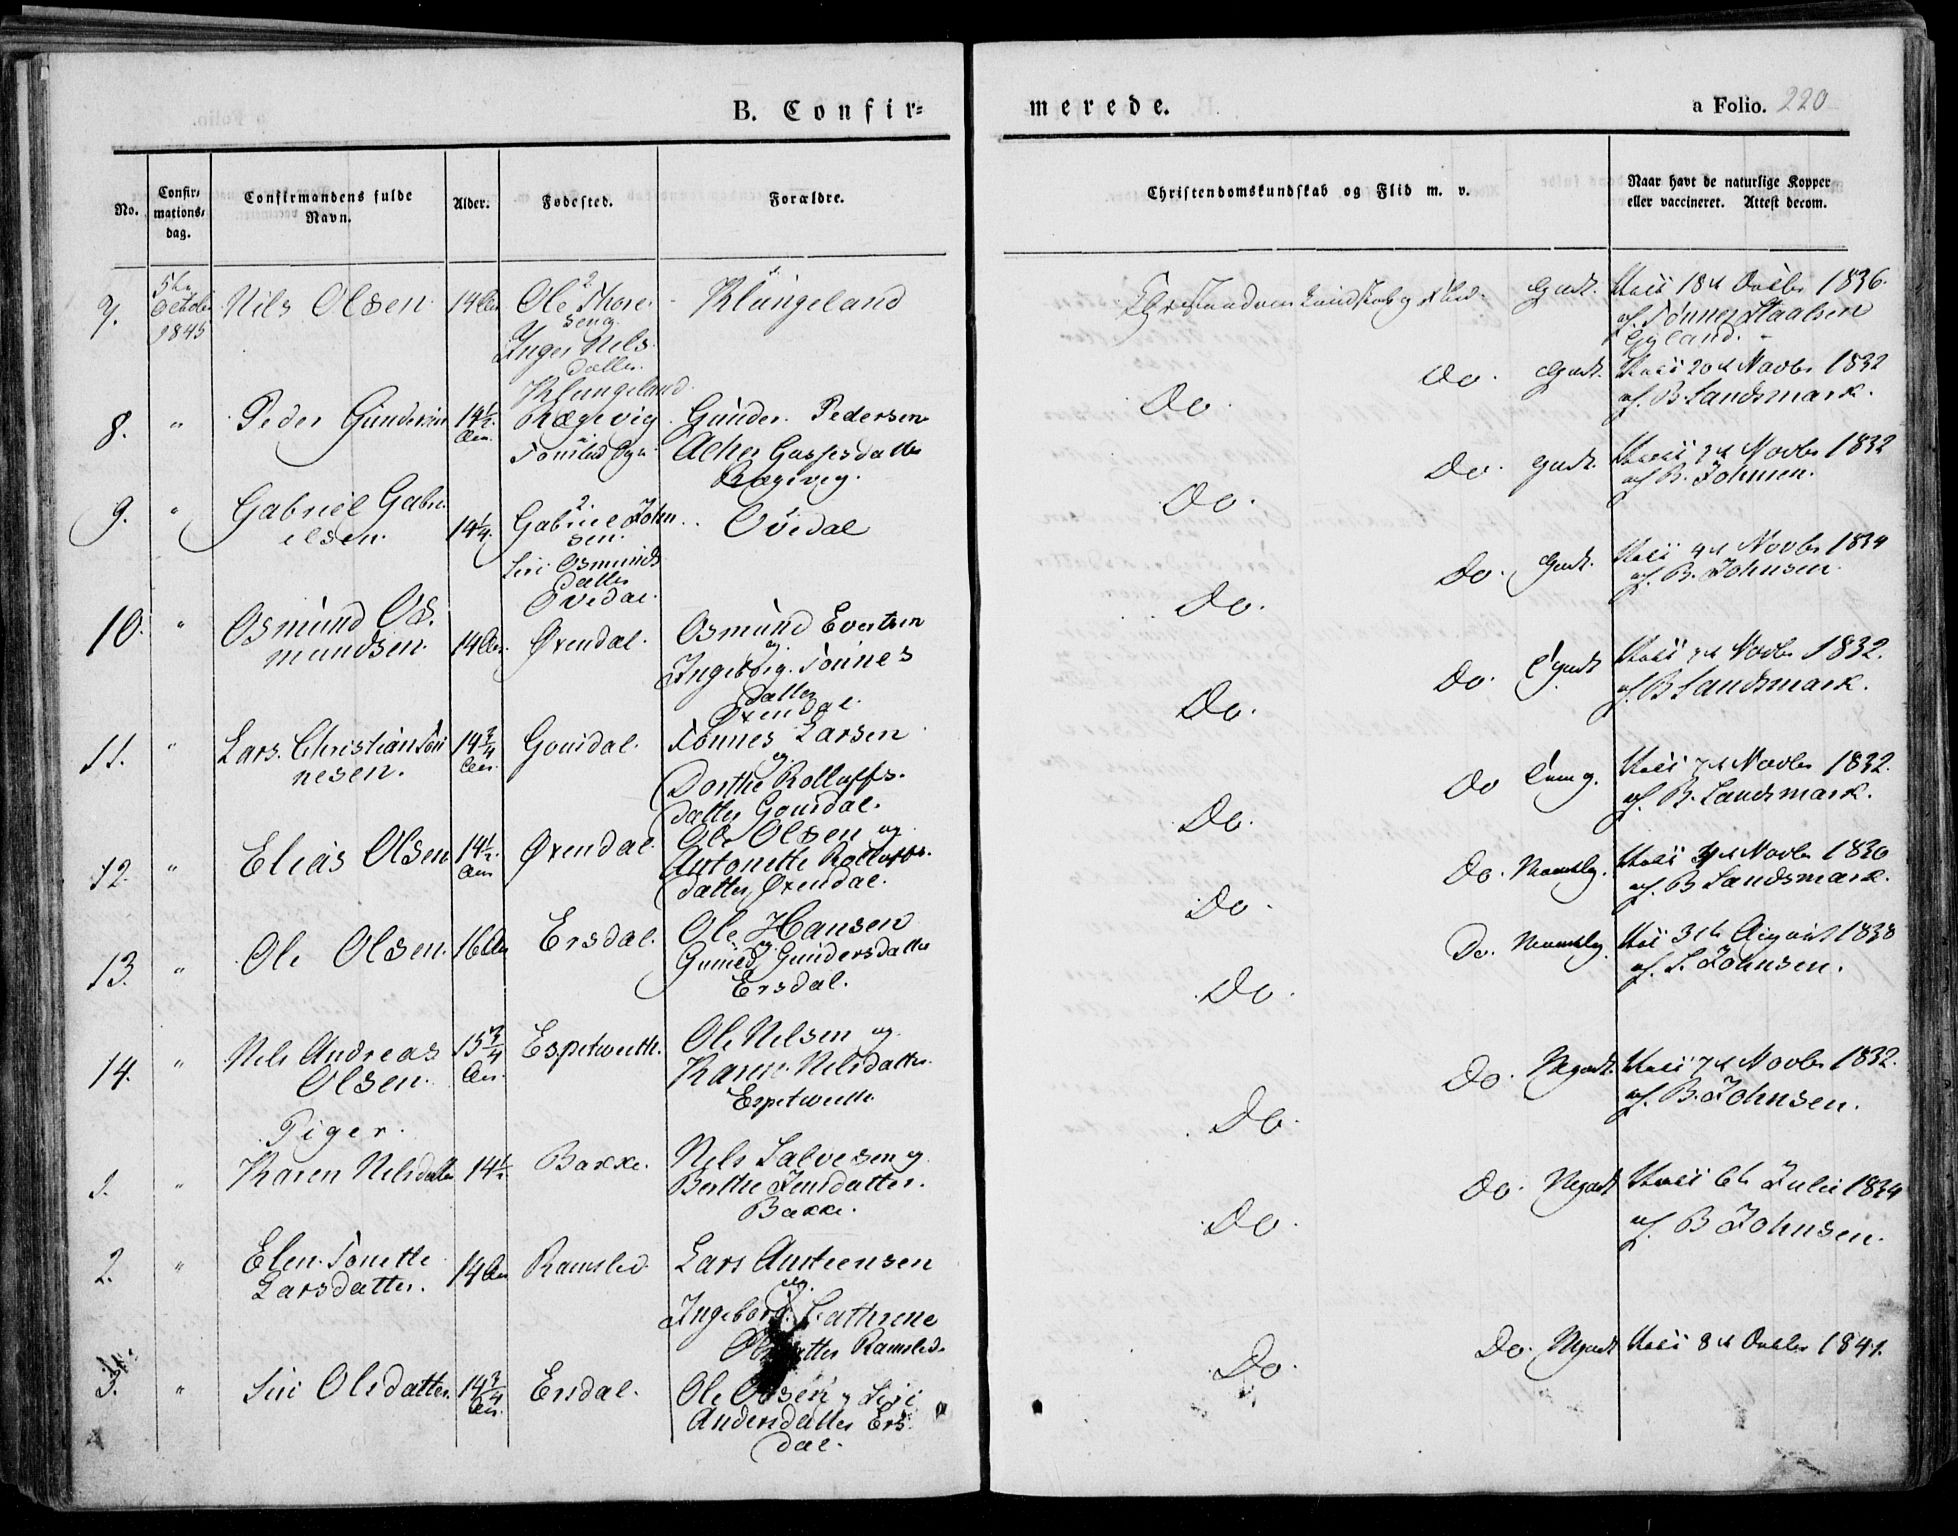 B. Confir=
merede.
a Folio. 220
No.
Confir=
mations=
dag.
Confirmandens fulde
Navn.
Alder.
Fødested.
Forældre.
Christendomskundskab og Flid m. v.
Naar havt de naturlige Kopper
eller vaccineret. Attest derom.
7.
5te
October
1845
Nils Olsen
14 Aar
Ole Thore
sen og
Inger Nels
datter
Klungeland
Klungeland
Godt.
18d Octbr 1836
af Tønnes Staalsen
Gyland.
8.
"
Peder Gundersen
14 1/2
Aar
Rægevig
Gunder Pedersen
Gaspersdatter
Rægevig.
Do.
Do. Godt.
20d Novbr 1832
af B. Landsmark.
9.
"
Gabriel Gabri
elsen.
14 1/4
Gabriel John
sen.
Siri Osmunds
datter
Ovedal
Ovedal
Do.
Do. godt.
7d Novbr 1832
af B. Johnsen.
10.
"
Osmund Os
mundsen.
14 Aar.
Øxendal.
Osmund Evertsen
og
Ingeborg Tønnes
datter
Øxendal.
Do.
Do. Godt.
4d Novbr 1834
af B. Johnsen.
11.
"
Lars Christian Tøn
nesen.
14 3/4
Aar.
Gousdal.
Tønnes Larsen
og
Dorthe Rolluffs
datter Gousdal.
Do.
Do.
7d Novbr 1832.
af B. Landsmark.
12.
"
Elias Olsen
14 1/2
Aar
Øxendal.
Ole Olsen og
Antonette Rolluffs
datter Øxendal.
Do.
Do
7d Novbr 1832.
af B. Landsmark.
13.
"
Ole Olsen.
16 Aar
Ersdal.
Ole Hansen
og
Gundersdatter
Ersdal.
Do.
Do.
Novbr 1830
af B Landsmark.
14.
"
Nils Andreas
Olsen.
15 3/4
Aar.
Espetweith.
Ole Nilsen og
Karen Nilsdatter
Espetweith.
Do.
Do.
3th August 1838
af S. Johnsen.
Piger.
1.
"
Karen Nilsdatter
14 1/2
Bakke.
Nils Salvesen og
Berthe Jensdatter.
Bakke.
Do.
Do. Mgodt.
7d Novbr 1832.
af B. Johnsen.
2.
"
Elen Tonette
Larsdatter.
14 Aar
Ramsled
Lars Austeensen
og
Ingeborg Cathrine
Ramsled.
Do.
Do. Mgodt
6te Julii 1834
af B Johnsen.
3.
"
Siri Olsdatter.
14 3/4
Aar.
Ersdal.
Ole Olsen og Siri
Andersdatter Ers
dal.
Do.
Do. Mgodt
8d Octbr 1841.